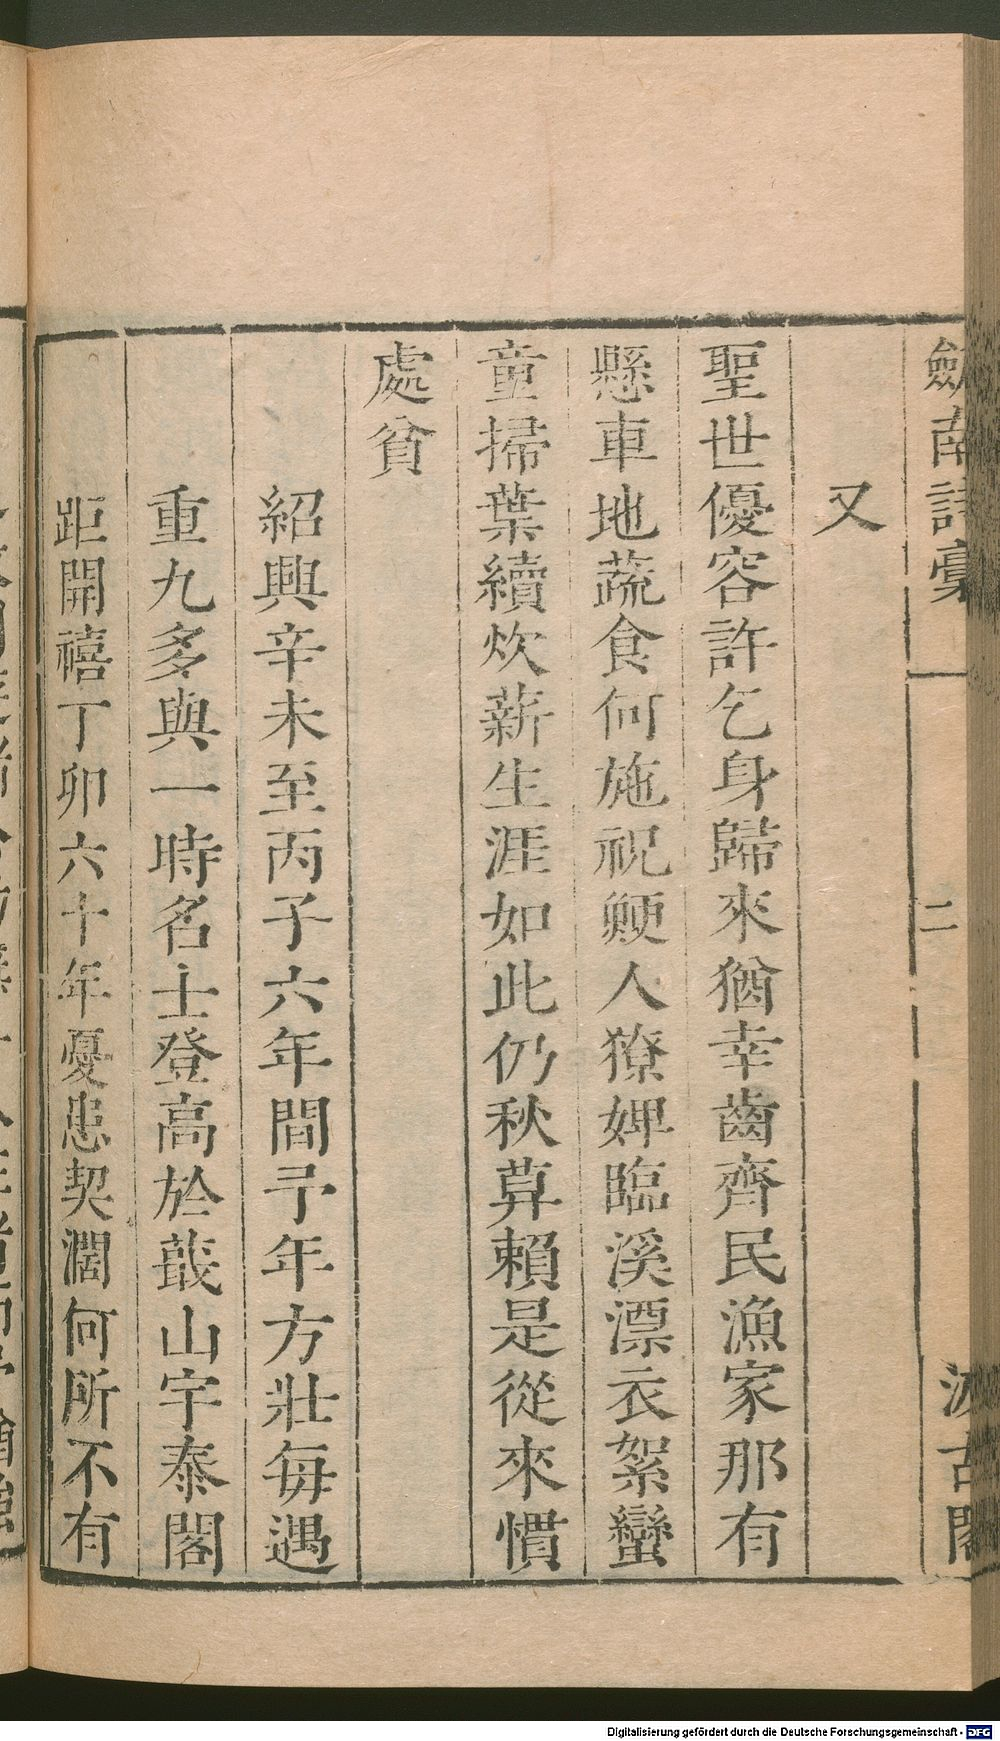 劎南詩稾
二
汲古閣
又
聖世優容許乞身歸來猶幸齒齊民漁家那有
懸車地蔬食何施祝鯁人獠婢臨溪漂衣絮蠻
童掃葉續炊薪生涯如此仍秋莫賴是從來慣
處貧
紹興辛未至丙子六年間予年方壯每遇
重九多與一時名士登高於蕺山宇泰閣
距開禧丁卯六十年憂患契濶何所不有
Digitalisierung gefördert durch die Deutsche Forschungsgemeinschaft - DFG